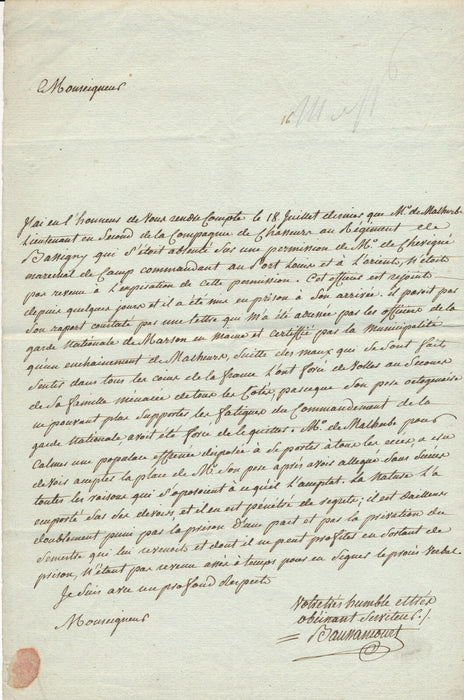 Monseigneur
J'ai eu l'honneur de Vous rendre Compte le 18 Juillet dernier que Mr. de Malherbe
Lieutenant en Second de la Compagnie de Chasseurs au Régiment de
Bassigny qui s'étoit absenté sur une permission de Mr. de Chevigné
marechal de Camp commandant au Port Louis et à L'orient, n'étoit
pas revenu à l'expiration de cette permission. Cet officier est rejoint
depuis quelques jours et il a été mis en prison à son arrivée. il paroit par
son raport constaté par une lettre qui m'a été adressée par les officiers de la
garde Nationale de Marson en maine et certiffié par la Municipalité
qu'un enchainement de Malheurs, suitte des maux qui se sont fait
sentir dans tous les coins de la france L'ont forcé de voller au Secours
de sa famille menacée de tous les Cotés, parceque son pere octogenaire
ne pouvant plus Supporter les fatigues du Commandement de la
garde Nationale avoit été forcé de le quitter. Mr. de Malherbe pour
Calmer une populace effrenée disposée à se porter à tous les exces, a cru
devoir accepter la place de Mr. son pere après avoir allegué sans succès
toutes les raisons qui s'oposoient à ce qu'il l'acceptat. La Nature l'a
emporté sur ses devoirs et il en est penétré de regrets; il est dailleurs
doublement puni par la prison d'une part et par la privation du
Semestre qui lui revenoit et dont il ne peut profiter en sortant de
prison, n'étant pas revenu assés à temps pour en signer le procès verbal.
Je suis avec un profond respect
Monseigneur
Votre très humble et très
obeissant Serviteur